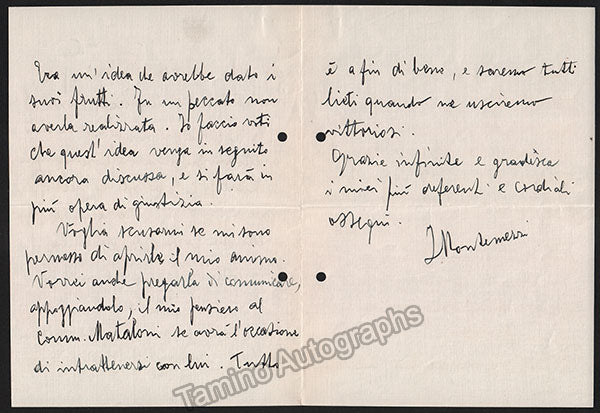 Era un'idea che avrebbe dato i
suoi frutti. Fu un peccato non
averla realizzata. Io faccio voti
che quest'idea venga in seguito
ancora discussa, e si farà un
più opera di giustizia.
Voglia scusarmi se mi sono
permesso di aprirle il mio animo.
Vorrei anche pregarla di comunicare,
appoggiandolo, il mio pensiero al
Comm. Mataloni se avrà l'occasione
di intrattenersi con lui. Tutto
è a fin di bene, e saremo tutti
lieti quando ne usciremo
vittoriosi.
Grazie infinite e gradisca
i miei più deferenti e cordiali
ossequi.
IMontemezzi
Tamino Autographs